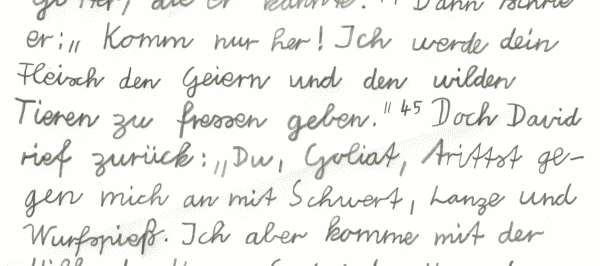 die er kannte." Dann schrie
er: „Komm nur her! Ich werde dein
Fleisch den Geiern und den wilden
Tieren zu fressen geben." 45 Doch David
rief zurück: „Du, Goliat, trittst ge-
gen mich an mit Schwert, Lanze und
Wurfspieß. Ich aber komme mit der